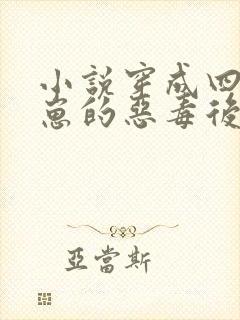 小說穿成四
崽的惡毒後
亞當斯